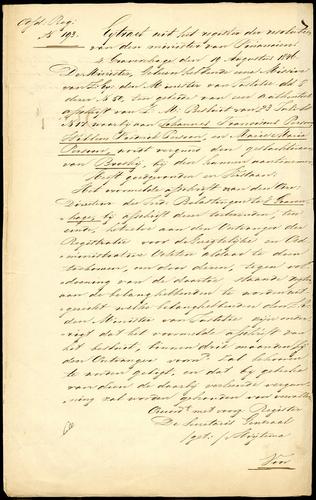 Afd. Reg.
N° 193.
Extract uit het register der resolutien
van den minister van Financien
's Gravenhage den 19 Augustus 1846
De Minister, Gelezen hebbende eene Missive
van den Minister van Justitie dd
N° 50, ten geleide van een authentiek
afschrift van Z. M. Besluit van 23 Julij
N° waarbij aan Johannes Franciscus Persoon
Willem Frederik Persoon, en Maria
Persoon, wordt vergund den geslachtsnaam
van bij den hunnen aantenemen,
Heeft goedgevonden en verstaan:
Het voormelde afschrift aan den
Directeur der Ind. Belastingen te 's Graven
hage, bij afschrift dezes toetezenden, ten
einde, hetzelve aan den Ontvanger der
Registratie voor de Geregtelijke en Ad
ministrative Acten aldaar te doen
toekomen, en door dezen, tegen vol
doening van de daartoe staande regten
aan de belanghebbenden te worden uit
gereikt welke belanghebbenden
den Minister van Justitie zijn onder
rigt dat het voormelde afschrift van
het besluit, binnen drie maanden bij
den Ontvanger voorn. zal behooren
te worden geligt, en dat bij gebreke
van dien de daarbij verleende vergun
ning zal worden gehouden van onwaarde
Overeenk. met voorz. Register
De Secretaris Generaal
/get:/
Voor